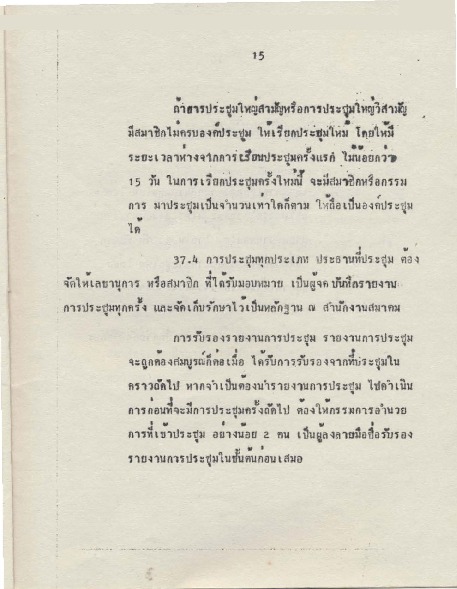 15
ถ้าการประชุมใหญ่สามัญหรือการประชุมใหญ่วิสามัญ
มีสมาชิกไม่ครบองค์ประชุม ให้เรียกประชุมใหม่ โดยให้มี
ระยะเวลาห่างจากการเรียกประชุมครั้งแรก ไม่น้อยกว่า
15 วัน ในการเรียกประชุมครั้งใหม่นี้ จะมีสมาชิกหรือกรรม
การ มาประชุมเป็นจำนวนเท่าใดก็ตาม ให้ถือเป็นองค์ประชุม
ได้
37.4 การประชุมทุกประเภท ประธานที่ประชุม ต้อง
จัดให้เลขานุการ หรือสมาชิก ที่ได้รับมอบหมาย เป็นผู้จดบันทึกรายงาน
การประชุมทุกครั้ง และจัดเก็บรักษาไว้เป็นหลักฐาน ณ สำนักงานสมาคม
การรับรองรายงานการประชุม รายงานการประชุม
จะถูกต้องสมบูรณ์ก็ต่อเมื่อ ได้รับการรับรองจากที่ประชุมใน
คราวถัดไป หากจำเป็นต้องนำรายงานการประชุม ไปดำเนิน
การก่อนที่จะมีการประชุมครั้งถัดไป ต้องให้กรรมการอำนวย
การที่เข้าประชุม อย่างน้อย 2 คน เป็นผู้ลงลายมือชื่อรับรอง
รายงานการประชุมในขั้นต้นก่อนเสมอ